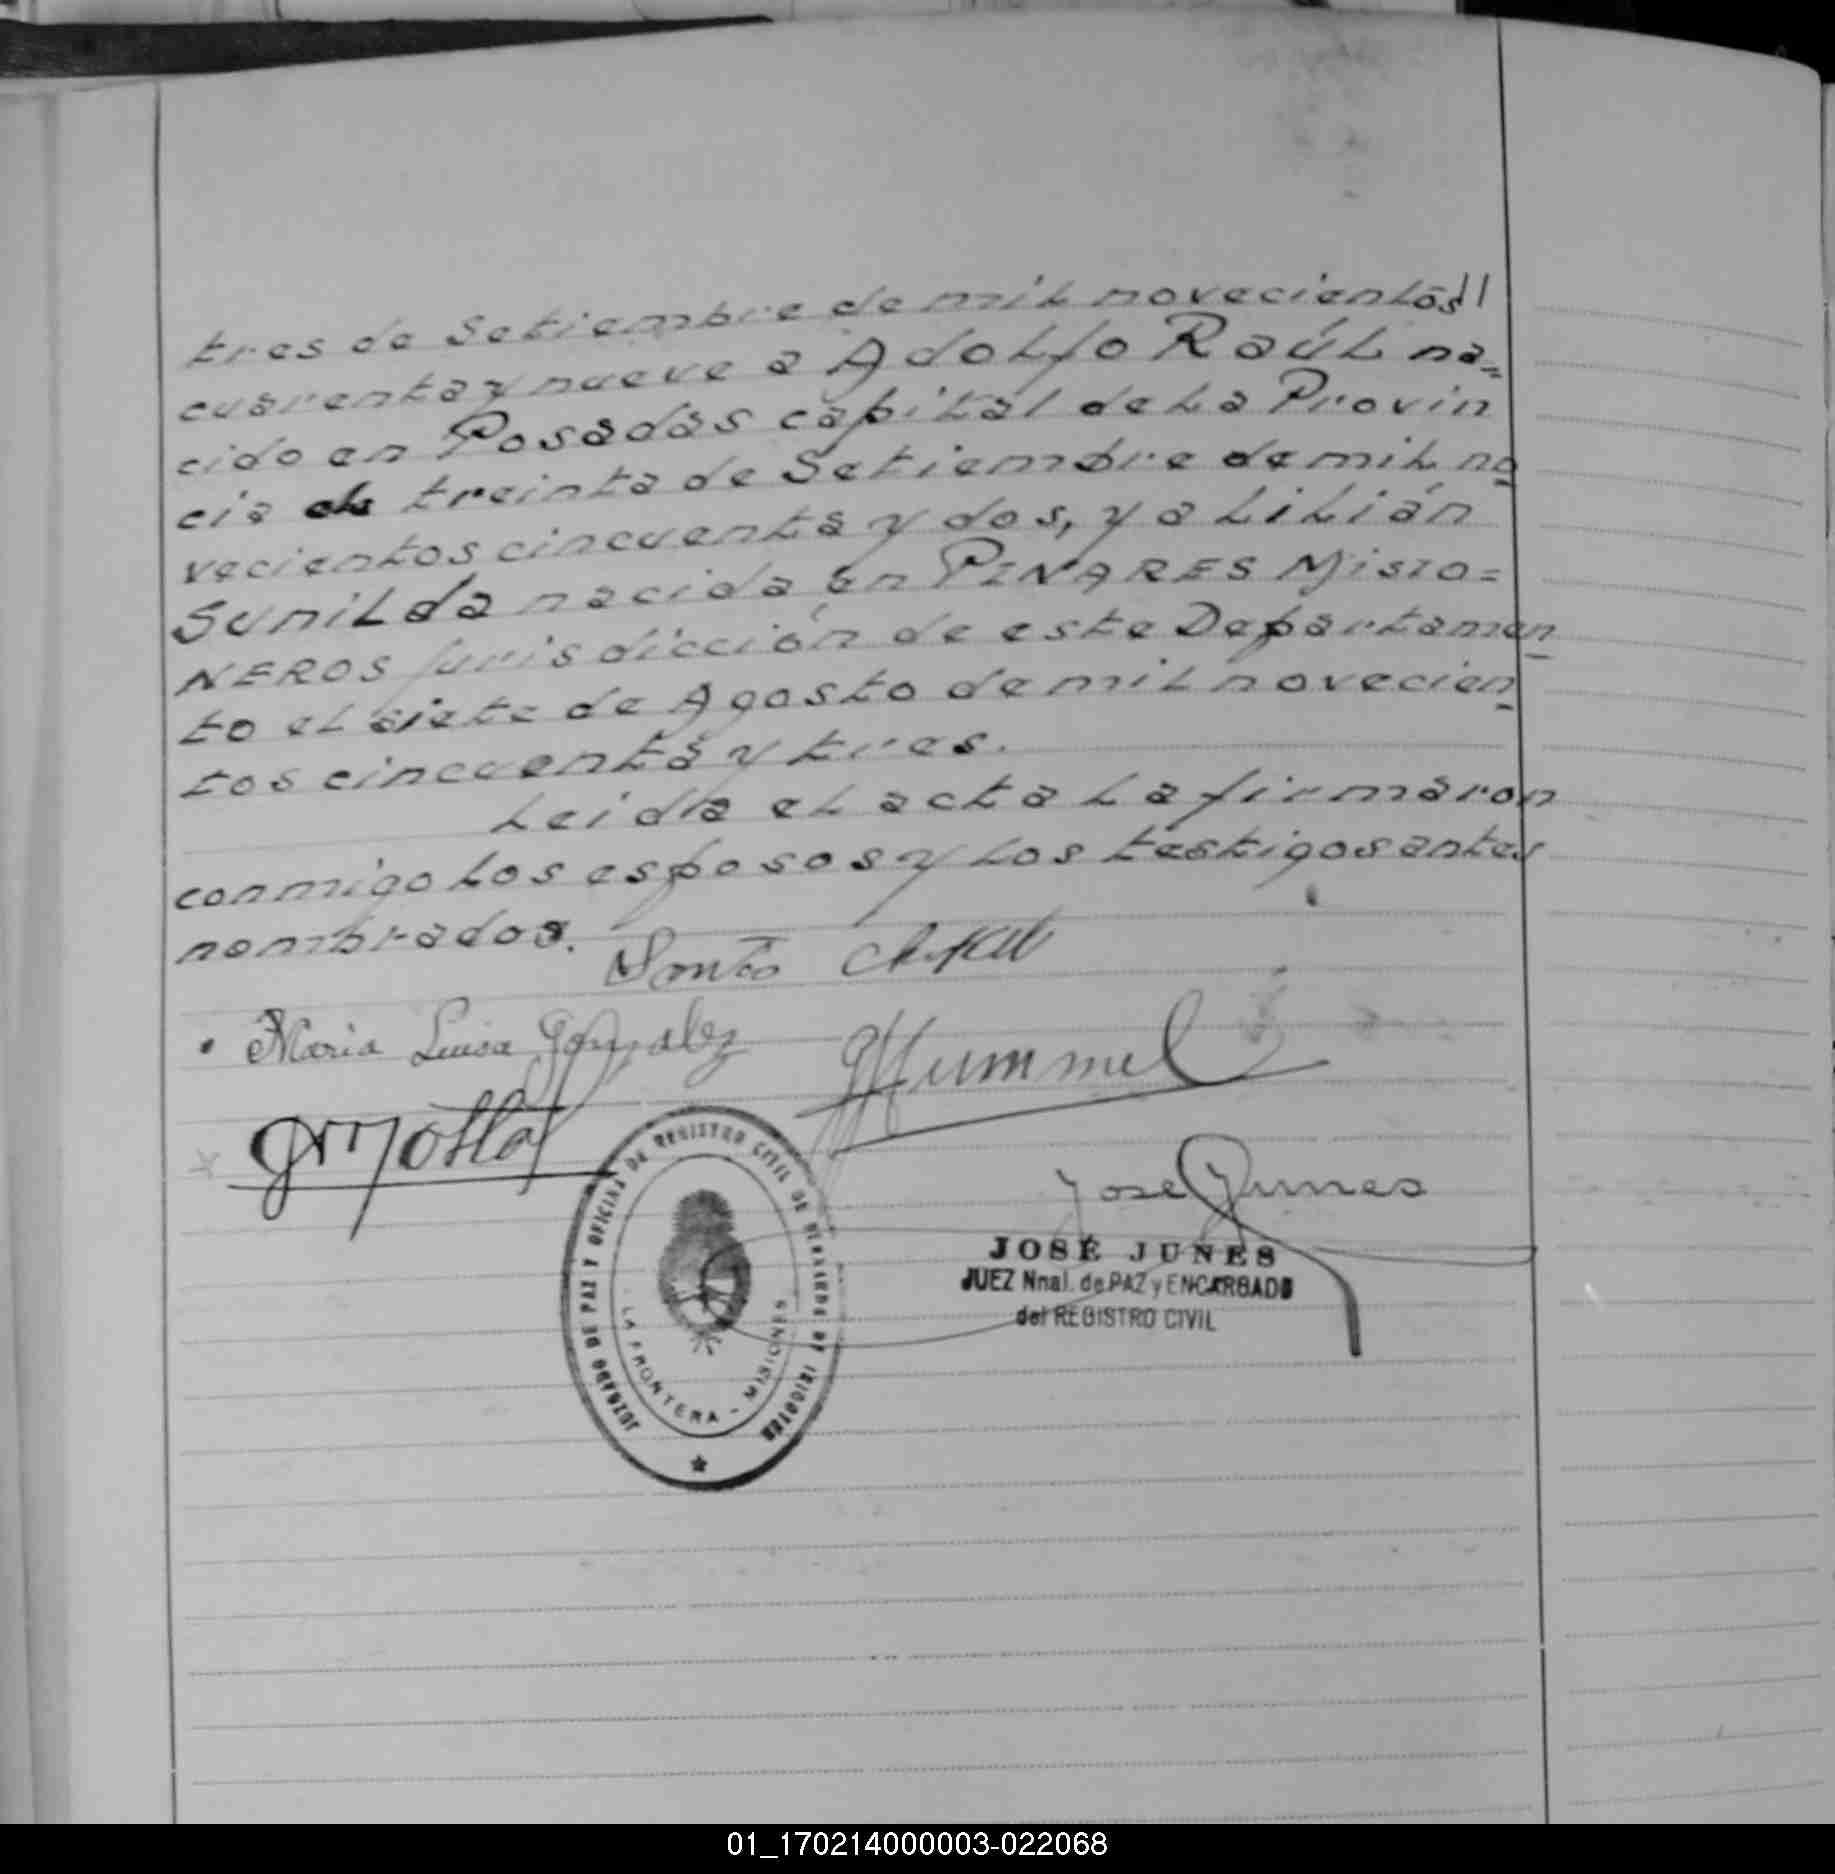 tres de Setiembre de mil novecientos//
cuarenta y nueve a Adolfo Raúl na=
cido en Posadas capital de La Provin
cia de treinta de Setiembre de mil no
vecientos cincuenta y dos, y a Lilián
Sunilda nacida en PINARES Misio=
NEROS jurisdicción de este Departamen
to el siete de Agosto de mil novecien
tos cincuenta y tres.
Leidia el acta La firmaron
conmigo Los esposos y Los testigos antes
nombrados.
Santo
Maria Luisa Gonzalez
Hummel
Jose Junes
JOSÉ JUNES
JUEZ Nnal. de PAZ y ENCARGADO
del REGISTRO CIVIL
JUZGADO DE PAZ Y OFICINA DE REGISTRO CIVIL DE BERNARDO DE IRIGOYEN
LA FRONTERA - MISIONES
01_170214000003-022068